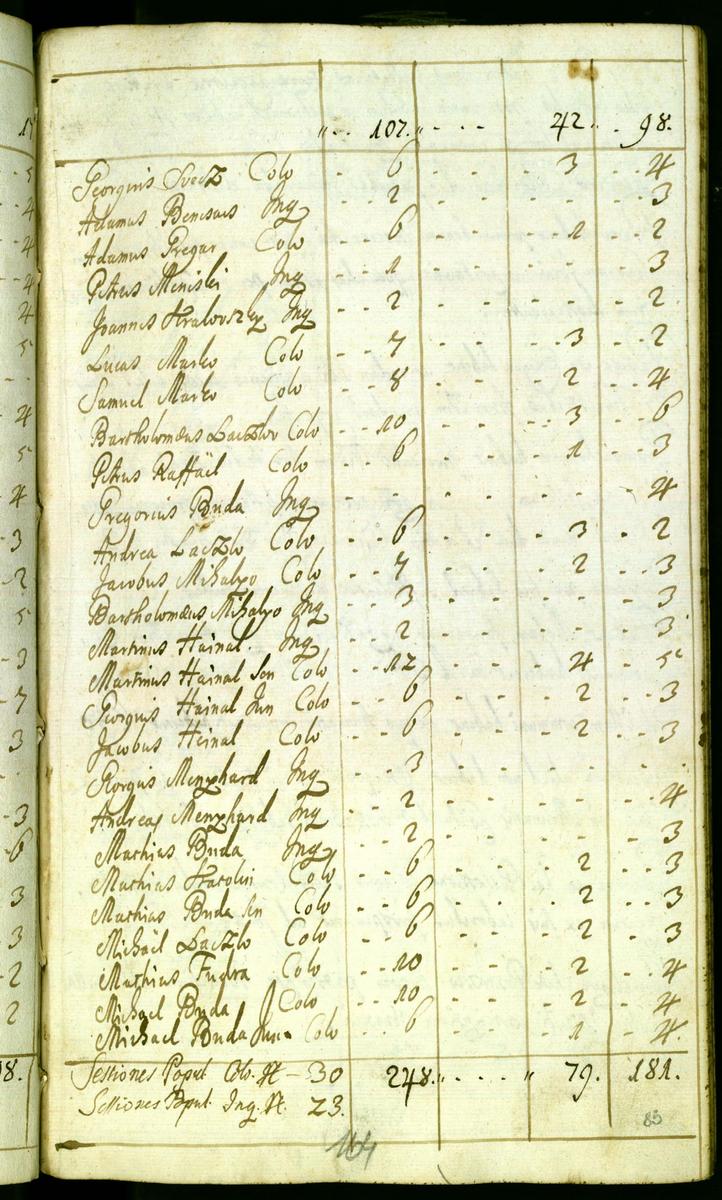 „ - - 107. „ - - - 42. - - 98.
Georgius Svecz Colo - 6 - - - 3 - 4
Adamus Benesács Inq - - 2 - - - - - - 3
Adamus Gregor Colo - - 6 - - - 1 - 2
Petrus Meniski Inq - - 1 - - - - - - 3
Joannes Kralovszky Inq - - 2 - - - - - - 2
Lucas Marko Colo - - 7 - - - 3 - 2
Samuel Marko Colo - - 8 - - - 2 - - 4
Bartholomæus Laczko Colo - - 10 - - - 3 - - 6
Petrus Raffäil Colo - - 6 - - - 1 - - 3
Gregorius Buda Inq - - - - - - 4
Andrea Laczko Colo - - 6 - - - 3 - 2
Jacobus Mihalyo Colo - - 7 - - - 2 - - 3
Bartholomæus Mihalyo Inq - - 3 - - - - - - 3
Martinus Hainal Inq - - 2 - - - - - - 3
Martinus Hainal Sen Colo - - 12 - - - 4 - 5
Georgius Hainal Jun Colo - - 6 - - - 2 - - 3
Jacobus Heinal Colo - - 6 - - - 2 - - 3
Georgius Menyhard Inq - - 3 - - - - - -
Andreas Menyhard Inq - - 2 - - - - - - 4
Mathias Buda Inq - - 2 - - - - - - 3
Mathias Karolin Colo - - 6 - - - 2 - - 3
Mathias Buda Sen Colo - - 6 - - - 2 - - 3
Michäel Laczko Colo - - 6 - - - 2 - - 3
Mathias Colo - - 10 - - - 2 - - 4
Michael Buda Colo - - 10 - - - 2 - - 4
Michael Buda Jun Colo - - 6 - - - 1 - 4.
Sessiones Popul. Colo. H - 30 248. „ - - - „ 79. 181.
Sessiones Popul. Inq. H. 23.
85
164